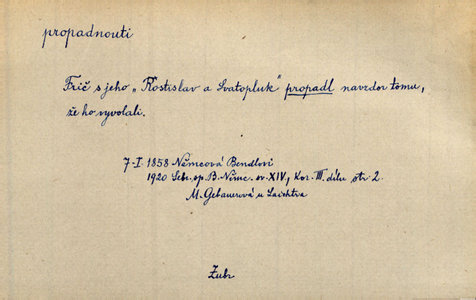 propadnouti
Frič s jeho „Rostislav a Svatopluk“ propadl navzdor tomu,
že ho vyvolali.
7-I 1858 Němcová Bendlovi
1920 Sebr. sp. B. Němc. sv. XIV, Kor. III. dílu str. 2
M. Gebauerová u Laichtra
Zubr